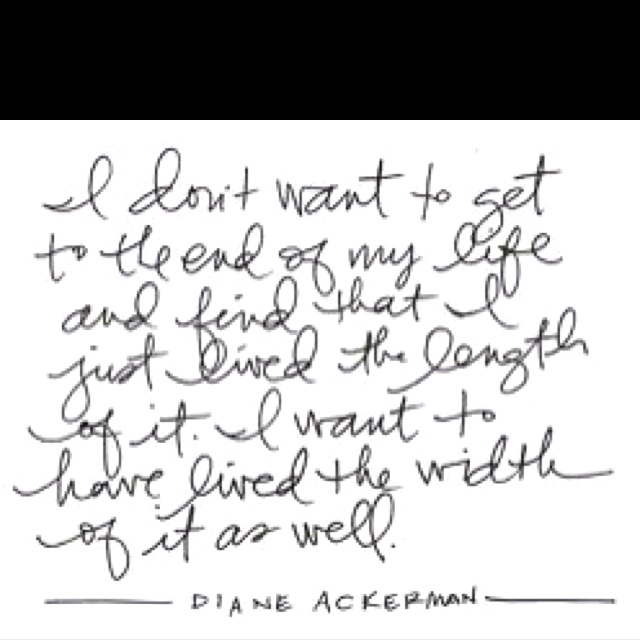 I don't want to get
to the end of my life
and find that I
just lived the length
of it. I want to
have lived the width
of it as well.
DIANE ACKERMAN